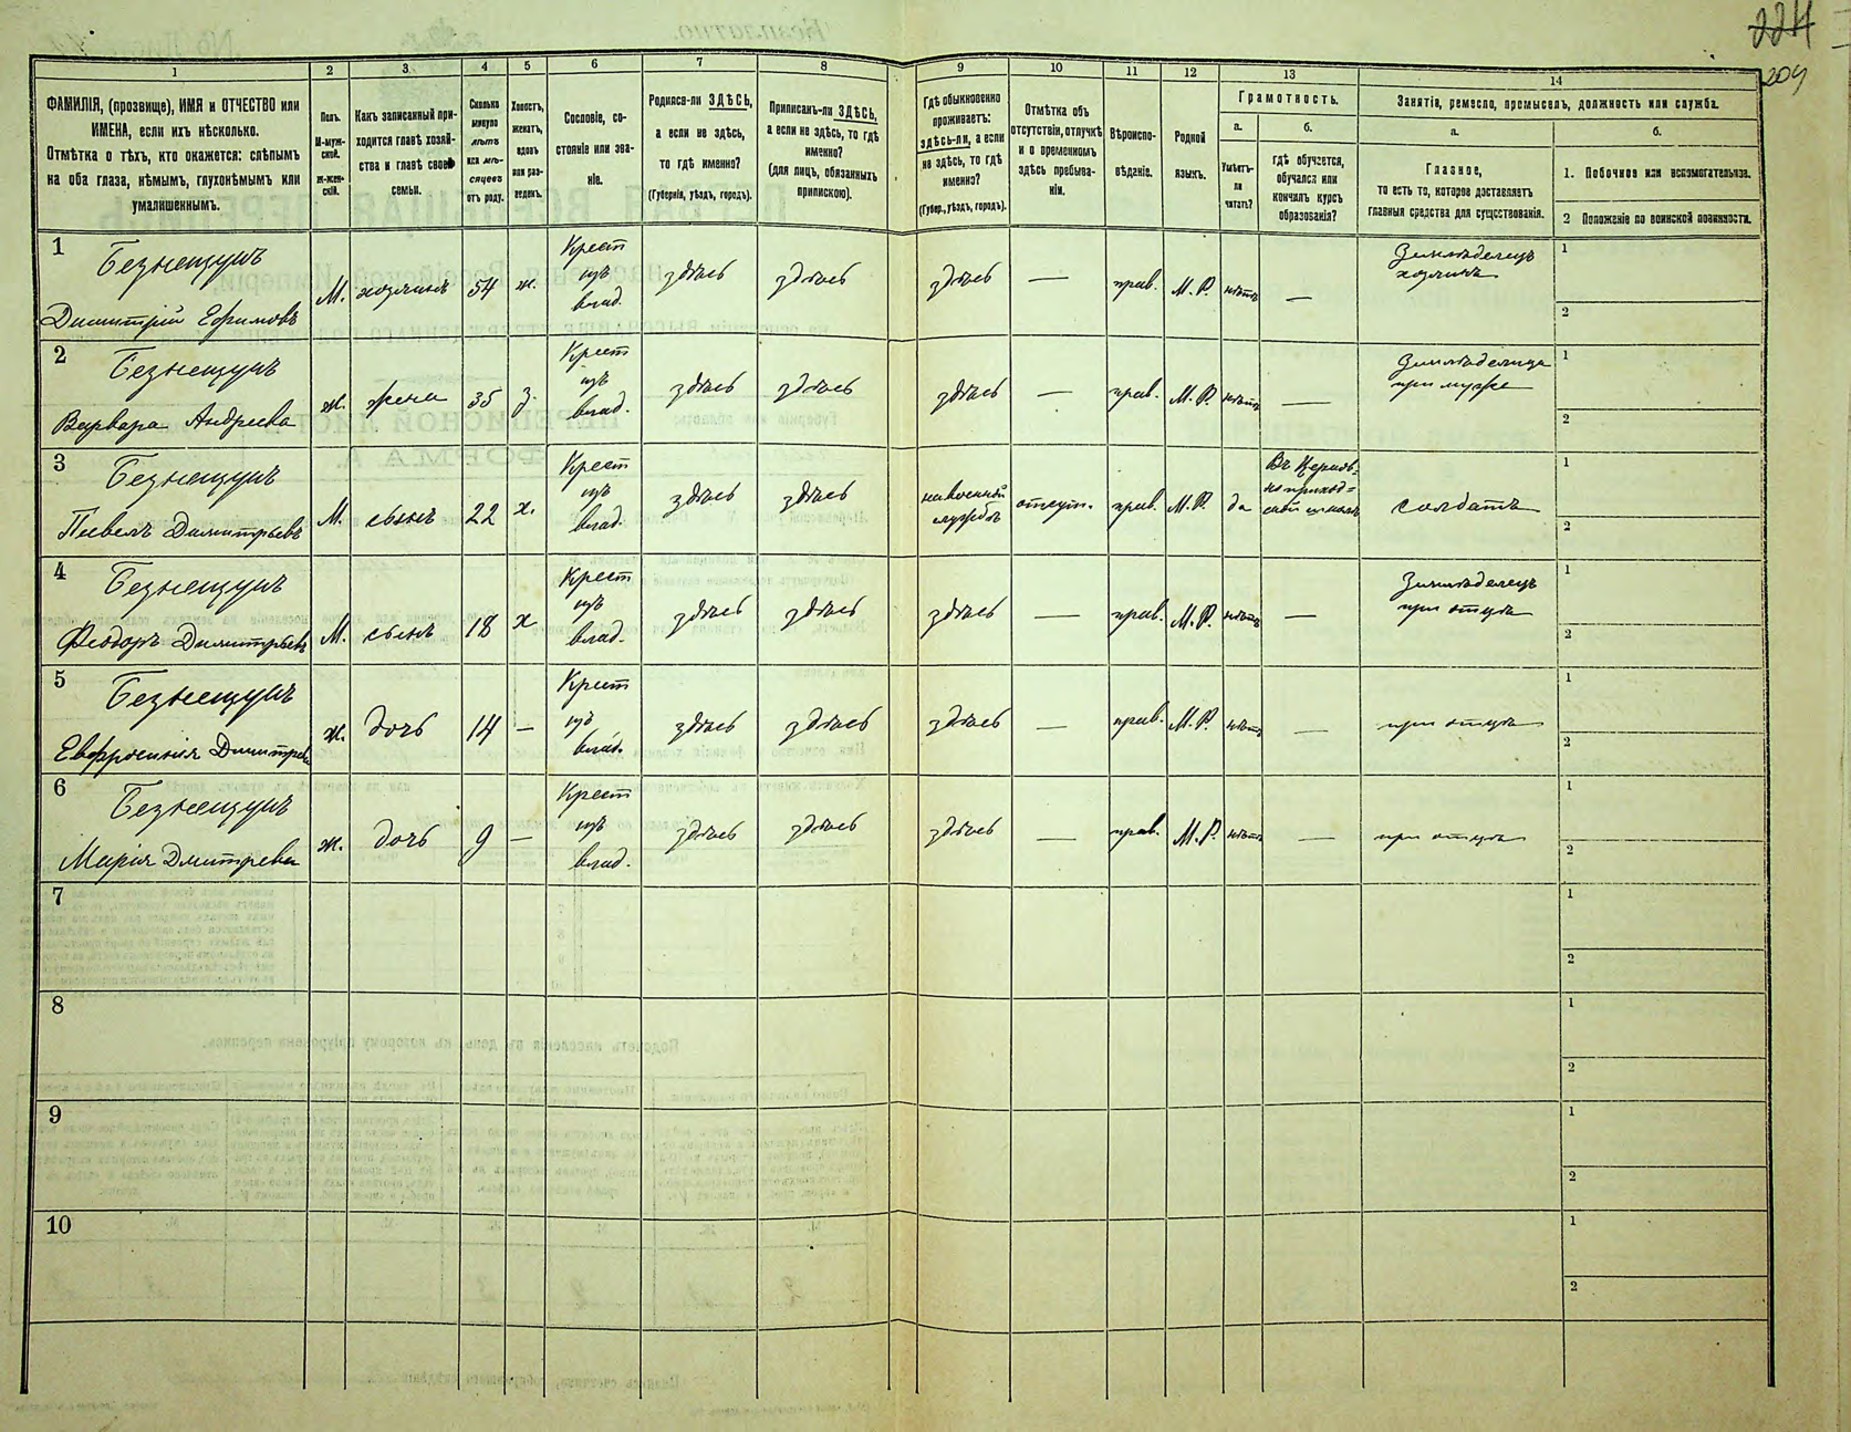 224
209
1
2
3
4
5
6
7
8
9
10
11
12
13
14
ФАМИЛІЯ, (прозвище), ИМЯ и ОТЧЕСТВО или
ИМЕНА, если ихъ нѣсколько.
Отмѣтка о тѣхъ, кто окажется: слѣпымъ
на оба глаза, нѣмымъ, глухонѣмымъ или
умалишеннымъ.
Полъ.
М-муж-
ской.
ж-жен-
скій.
Какъ записанный при-
ходится главѣ хозяй-
ства и главѣ своей
семьи.
Сколько
минуло
лѣтъ
или мѣ-
сяцевъ
отъ роду.
Холостъ,
женатъ,
вдовъ
или раз-
веденъ.
Сословіе, со-
стояніе или зва-
ніе.
Родился-ли ЗДѢСЬ,
а если не здѣсь,
то гдѣ именно?
(Губернія, уѣздъ, городъ).
Приписанъ-ли ЗДѢСЬ,
а если не здѣсь, то гдѣ
именно?
(для лицъ, обязанныхъ
припискою).
Гдѣ обыкновенно
проживаетъ:
здѣсь-ли, а если
не здѣсь, то гдѣ
именно?
(Губер., уѣздъ, городъ).
Отмѣтка объ
отсутствіи, отлучкѣ
и о временномъ
здѣсь пребыва-
ніи.
Вѣроиспо-
вѣданіе.
Родной
языкъ.
Грамотность.
а.
б.
Умѣетъ-
ли
читать?
гдѣ обучается,
обучался или
кончилъ курсъ
образованія?
Занятіе, ремесло, промыселъ, должность или служба.
а.
б.
Главное,
то есть то, которое доставляетъ
главныя средства для существованія.
1. Побочное или вспомогательное.
2 Положеніе по воинской повинности.
1
Безнещушъ
Димитрій Ефимовъ
М.
хозяинъ
54
ж.
Крест
изъ
влад.
здѣсь
здѣсь
здѣсь
—
прав.
М. Р.
нѣтъ
—
Земледѣлецъ
хозяинъ
1
2
2
Безнещушъ
Варвара Андреева
ж.
жена
35
з.
Крест
изъ
влад.
здѣсь
здѣсь
здѣсь
—
прав.
М. Р.
нѣтъ
—
Земледѣлица
при мужѣ
1
2
3
Безнещушъ
Павелъ Димитріевъ
М.
сынъ
22
х.
Крест
изъ
влад.
здѣсь
здѣсь
на военной
службѣ
отсут.
прав.
М. Р.
да
Въ Церков-
но приход=
ской школѣ
солдатъ
1
2
4
Безнещушъ
Феодоръ Димитріевъ
М.
сынъ
18
х
Крест
изъ
влад.
здѣсь
здѣсь
здѣсь
—
прав.
М. Р.
нѣтъ
—
Земледѣлецъ
при отцѣ
1
2
5
Безнещушъ
Евфросинія Дмитрева
ж.
дочь
14
—
Крест
изъ
влад.
здѣсь
здѣсь
здѣсь
—
прав.
М. Р.
нѣтъ
—
при отцѣ
1
2
6
Безнещушъ
Марія Дмитрева
ж.
дочь
9
—
Крест
изъ
влад.
здѣсь
здѣсь
здѣсь
—
прав.
М. Р.
нѣтъ
—
при отцѣ
1
2
7
1
2
8
1
2
9
1
2
10
1
2